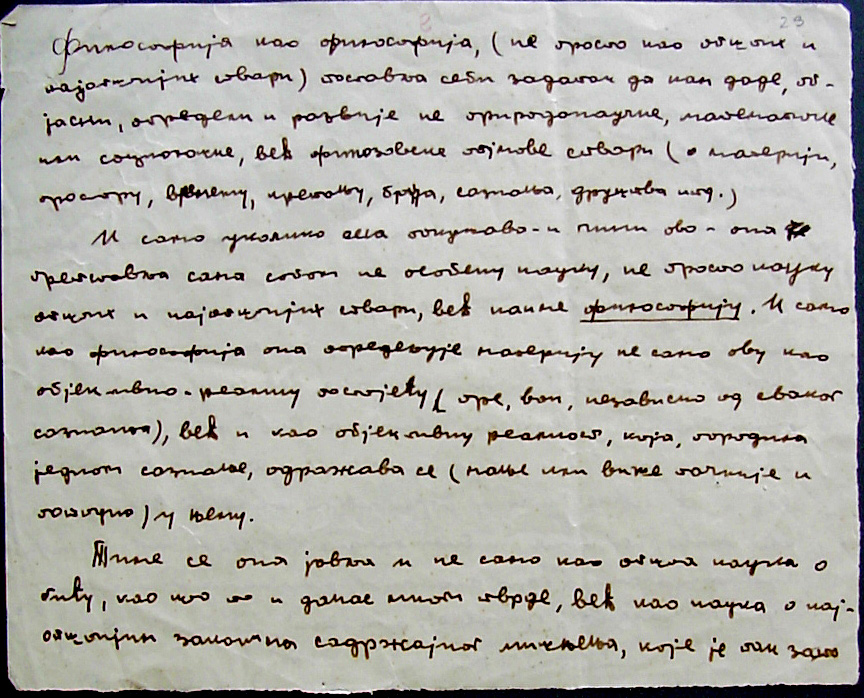 29
Филисофија као филисофија, (не просто као општих и
најопштијих ствари) поставља себи задатак да нам даде, об-
јасни, определи и развије не природонаучне, математичке
или социолошке, већ филозовске појмове ствари (о материји,
простору, времену, кретању, броја, сазнања, друштва итд.)
И само уколико она покушава - и чини ово - она
претставља сама собом не особену науку, не просто науку
општих и најопштијих ствари, већ наиме филисофију. И само
као филисофија она определује материју не само ову као
објективно-реалну постојећу (пре, ван, независно од сваког
сазнања), већ и као објективну реалност, која, породила
једном сазнање, одражава се (мање или више тачније и
потпуно) у њему.
Тиме се она јавља и не само као општа наука о
бићу, као што то и данас многи тврде, већ као наука о нај-
општијим законима садржајног мишљења, које је пак зато